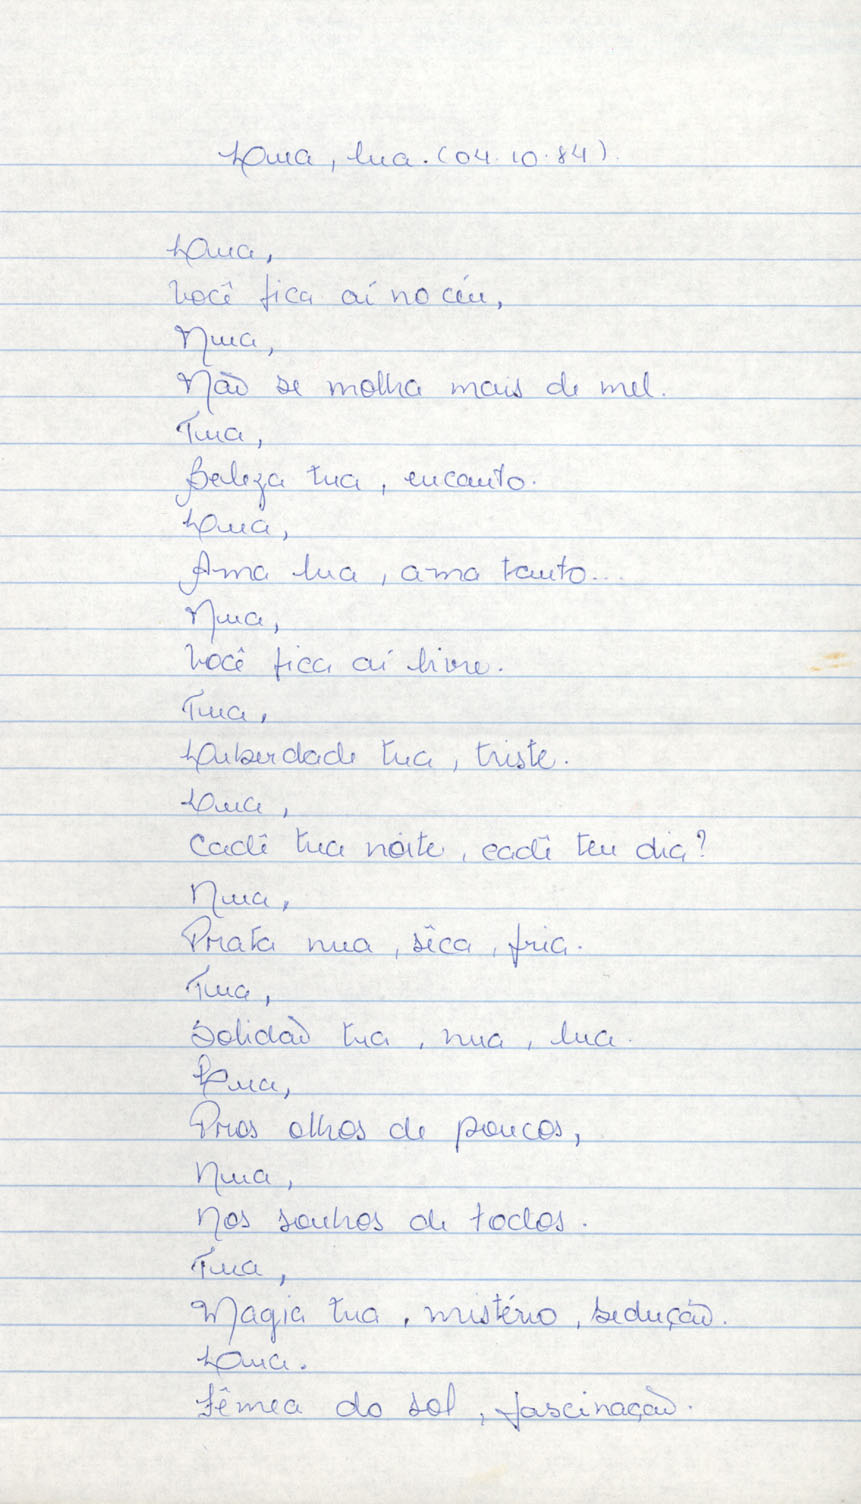 Lua, lua. (04.10.84).
Lua,
Você fica aí no céu,
Nua,
Não se molha mais de mel.
Tua,
Beleza tua, encanto.
Lua,
Ama lua, ama tanto...
Nua,
Você fica aí livre.
Tua,
Liberdade tua, triste.
Lua,
Cadê tua noite, cadê teu dia?
Nua,
Prata nua, sêca, fria.
Tua,
Solidão tua, nua, lua.
Lua,
Pros olhos de poucos,
Nua,
Nos sonhos de todos.
Tua,
Magia tua, mistério, sedução.
Lua.
Fêmea do sol, fascinação.